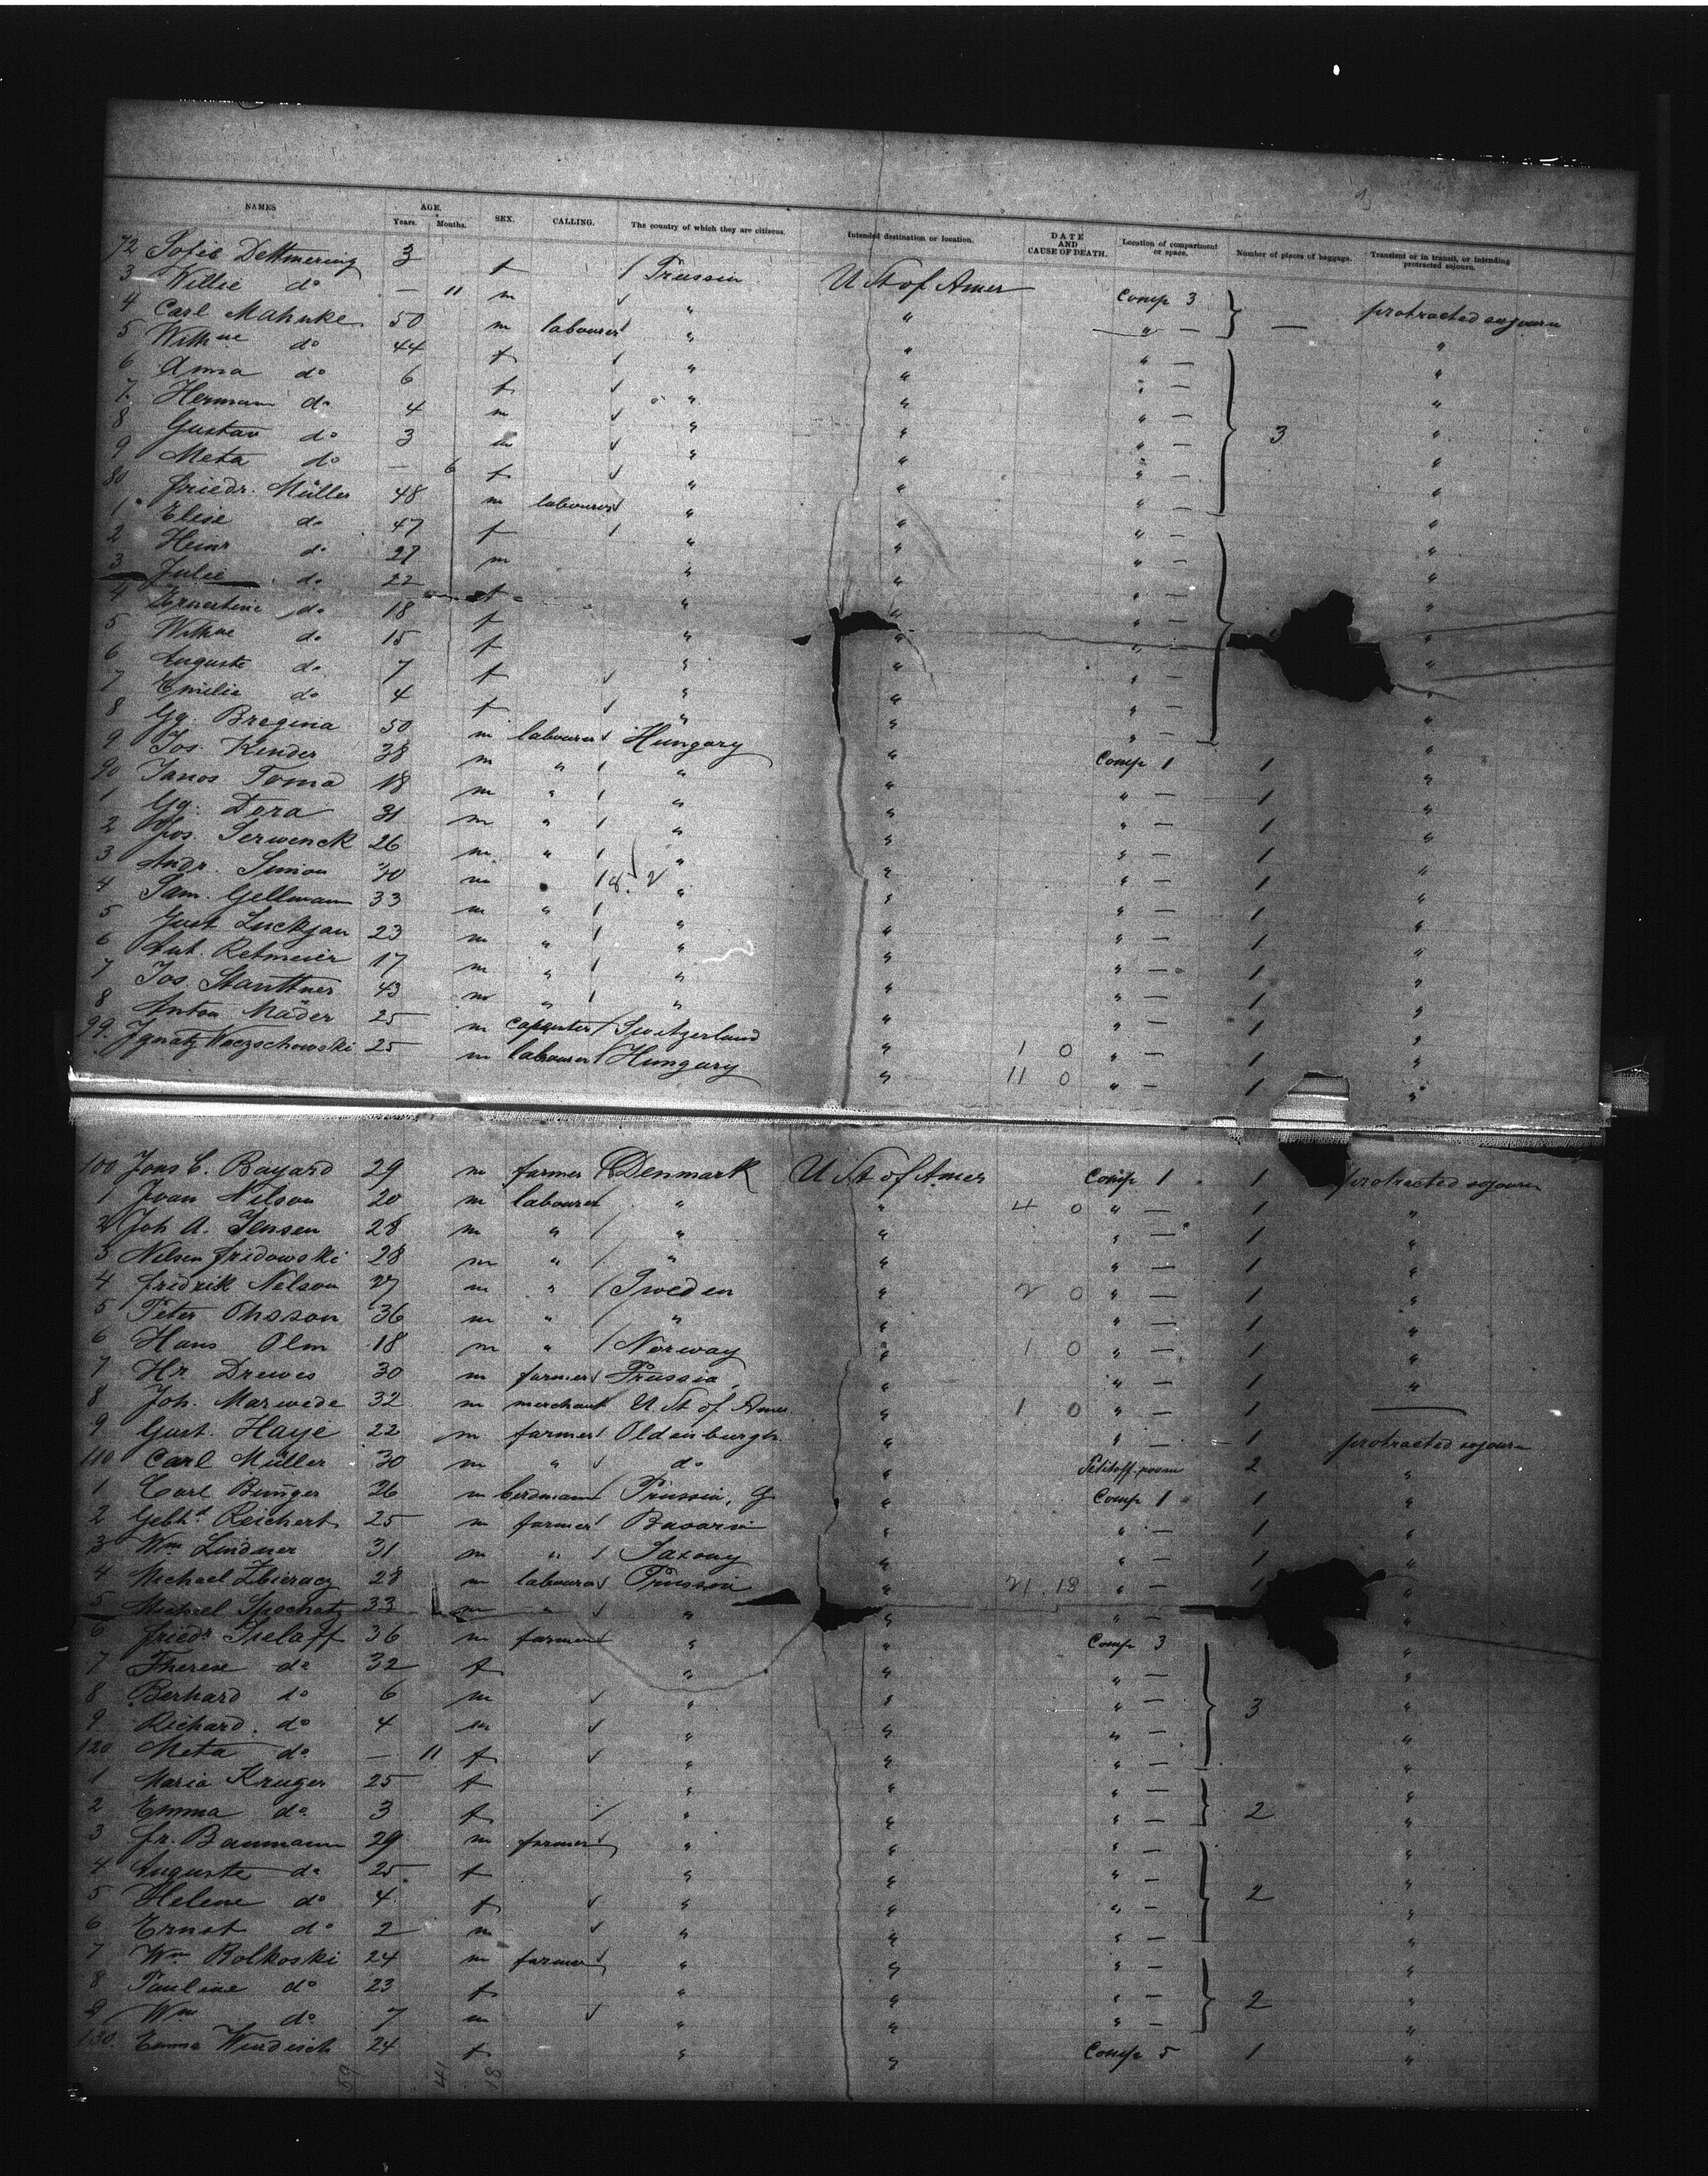 NAMES AGE. Years. Months. SEX. CALLING. The country of which they are citizens. Intended destination or location. DATE AND CAUSE OF DEATH. Location of compartment or space. Number of pieces of baggage. Transient or in transit, or intending protracted sojourn.
72 Sofie Dettmering 3 f / Prussia U St of Amer Comp 3 — protracted sojourn
3 Willie do — 11 m ✓ " " " — "
4 Carl Mahnke 50 m labourer " " " — "
5 Withne do 44 f / " " " — "
6 Anna do 6 f ✓ " " " — "
7 Hermann do 4 m ✓ " " " — 3 "
8 Gustav do 3 m ✓ " " " — "
9 Meta do — 6 f ✓ " " " — "
80 Friedr. Müller 48 m labourer " " " — "
1 Elise do 47 f / " " " — "
2 Heinr do 27 m " " " — "
3 Julie do 22 f " " " — "
4 Ernestine do 18 f " " " — "
5 Withne do 15 f " " " — "
6 Auguste do 7 f ✓ " " " — "
7 Emilie do 4 f ✓ " " " — "
8 Gg. Bregina 50 m labourer Hungary " Comp 1 1 "
9 Jos. Kender 38 m " / " " " — 1 "
90 Janos Toma 18 m " / " " " — 1 "
1 Gg. Dora 31 m " / " " " — 1 "
2 Jos. Serwenck 26 m " / " " " — 1 "
3 Andr. Simon 30 m " / " " " — 1 "
4 Sam. Gellmann 33 m " / " " " — 1 "
5 Gust Luckjan 23 m " / " " " — 1 "
6 Ant. Retmeier 17 m " / " " " — 1 "
7 Jos. Stanttner 43 m " / " " " — 1 "
8 Anton Mäder 25 m carpenter / Switzerland " 1 0 " — 1 "
99. Ignatz Woczschowski 25 m labourer / Hungary " 11 0 " — 1 "
100 Jons C. Bayard 29 m farmer Denmark U St of Amer Comp 1 1 protracted sojourn
1 Ivan Nilson 20 m labourer " " 4 0 " — 1 "
2 Joh A. Jensen 28 m " / " " " — 1 "
3 Nilsen Fridowski 28 m " / " " " — 1 "
4 Fredrik Nelson 27 m " / Sweden " 2 0 " — 1 "
5 Peter Ohsson 36 m " / " " " — 1 "
6 Hans Olm 18 m " / Norway " 1 0 " — 1 "
7 Hr. Drewes 30 m farmer / Prussia " " — 1 "
8 Joh. Marwede 32 m merchant U St of Amer " 1 0 " — 1 —
9 Gust. Haye 22 m farmer / Oldenburgh " " — 1 protracted sojourn
110 Carl Müller 30 m " ✓ do " room 2 "
1 Carl Bünger 26 m Prussia, G " Comp 1 1 "
2 Gebhd Reichert 25 m farmer Bavaria " " — 1 "
3 Wm Lindner 31 m " / Saxony " " — 1 "
4 Michael Zbieracz 28 m labourer Prussia " 21. 18 " — 1 "
5 Michael Spochatz 33 m " ✓ " " " — "
6 Friedr Sielaff 36 m farmer " " Comp 3 "
7 Therese do 32 f " " " — "
8 Berhard do 6 m ✓ " " " — 3 "
9 Richard do 4 m ✓ " " " — "
120 Meta do — 11 f ✓ " " " — "
1 Maria Kruger 25 f " " " — "
2 Emma do 3 f / " " " — 2 "
3 Fr. Baumann 29 m farmer " " " — "
4 Auguste do 25 f " " " — "
5 Helene do 4 f ✓ " " " — 2 "
6 Ernst do 2 m ✓ " " " — "
7 Wm Bolkoski 24 m farmer " " " — "
8 Pauline do 23 f " " " — 2 "
9 Wm do 7 m ✓ " " " — "
130. Emma Windisch 24 f " " Comp 5 1 "
59 41 18